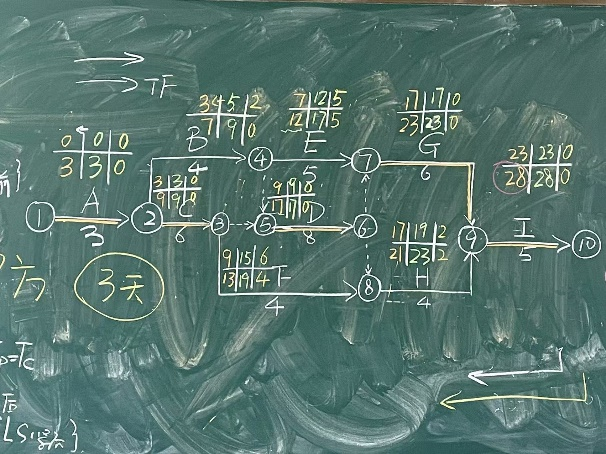 TF
3 4 5 2
7 9 0
7 12 5
12 17 5
17 17 0
23 23 0
0 0 0
3 3 0
B
E
G
23 23 0
28 28 0
4
④
5
⑦
6
前}
A
3 3 0
9 9 0
C
9 9 0
17 17 0
D
①
3
②
6
③
⑤
8
⑥
17 19 2
21 23 2
⑨
I
5
⑩
为
3天
9 15 6
13 19 4
F
4
⑧
H
4
=Tc
LS
}